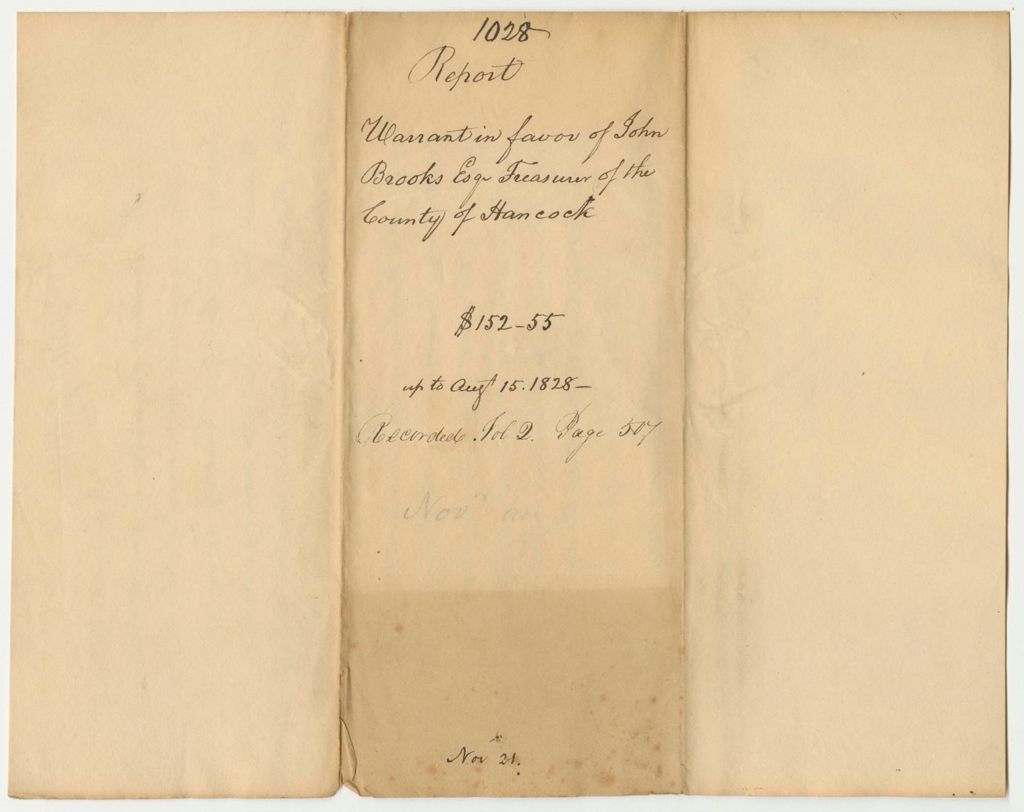 1028
Report
Warrant in favor of John
Brooks Esqr Treasurer of the
County of Hancock
$152-55
up to Augt 15. 1828-
Recorded. Vol 2. Page 507
Nov
Nov 21.